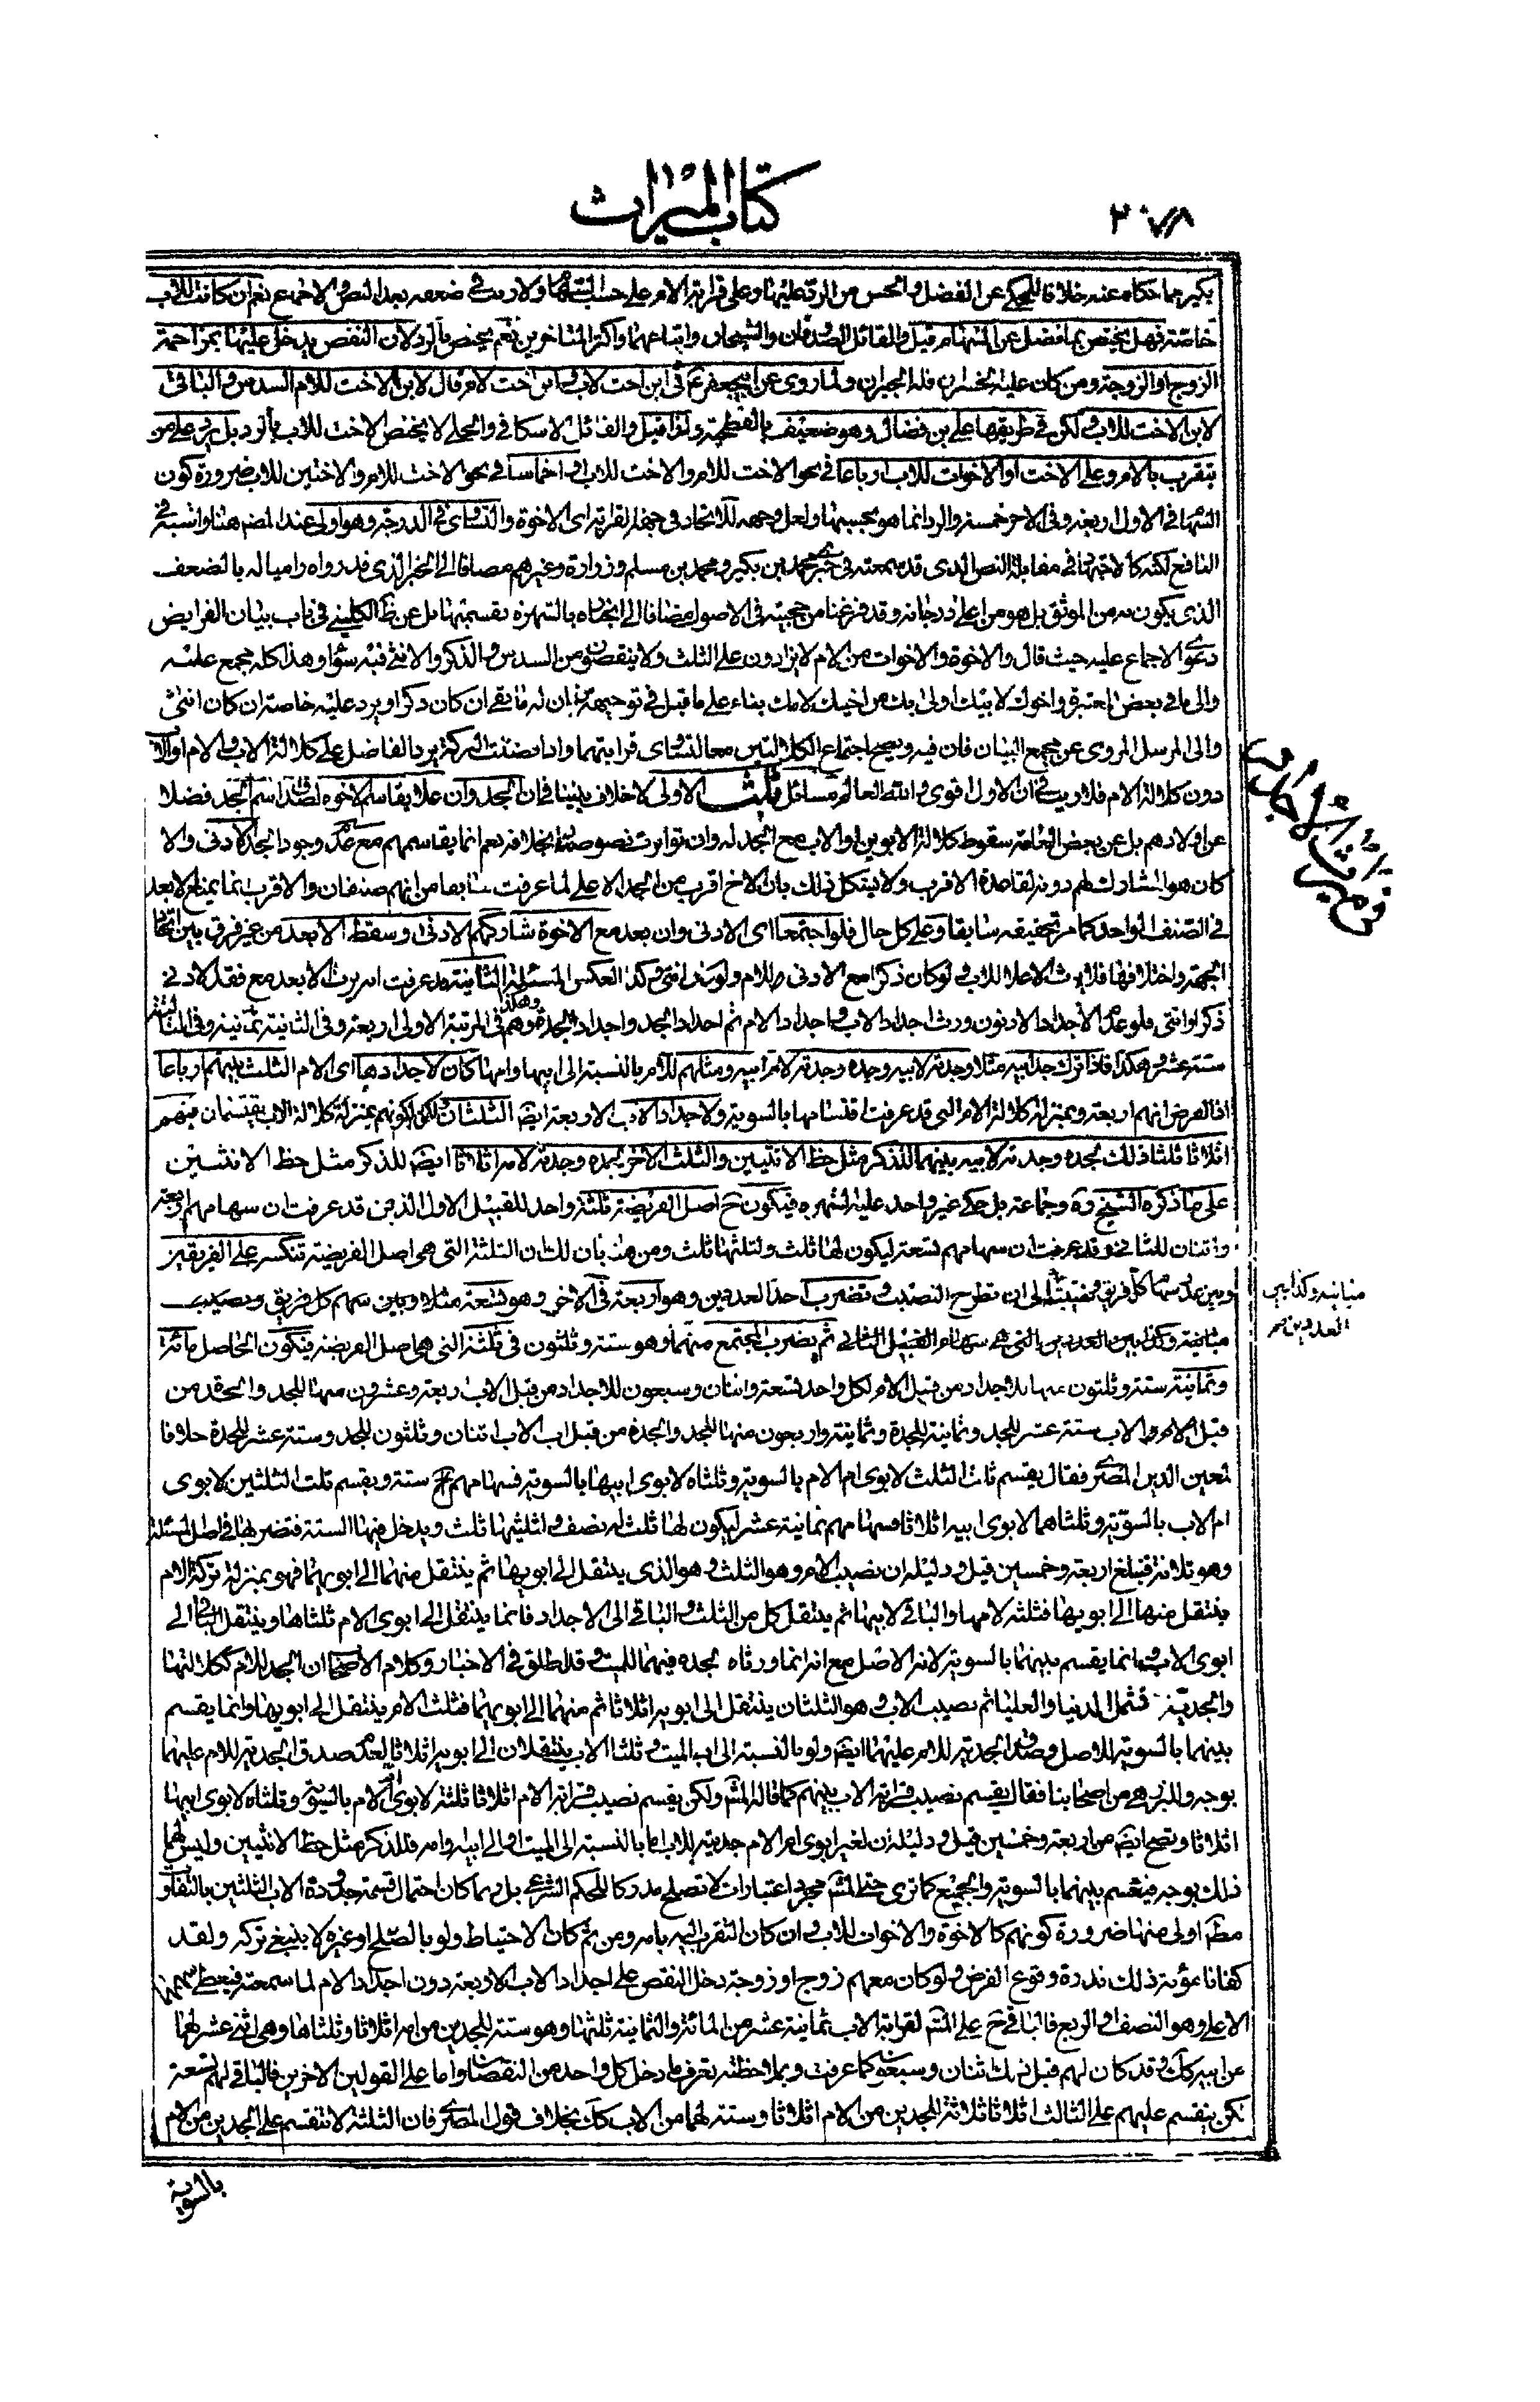 كتاب الميراث
٢٠٧٨
بكير مما حكاه عنه خلافا للمحكي عن الفضل والحسن من الرد عليها وعلى قرابة الام على حسب السهام ولا ريب في ضعفه بعد النص والاجماع نعم ان كانت للاب
خاصة فهل يختص بما فضل عن السهام قيل والقائل الصدوقان والشيخان واتباعهما واكثر المتأخرين نعم يختص بالرد لان النقص يدخل عليها بمزاحمة
الزوج او الزوجة ومن كان عليه الخسران فله الجبران ولما روي عن ابيجعفر ع في ابن اخت لاب وابن اخت لام قال لابن الاخت للام السدس والباقي
لابن الاخت للاب لكن في طريقها علي بن فضال وهو ضعيف بالفطحية ولذا قيل والقائل الاسكافي والحلي لا يختص الاخت للاب بالرد بل يرد على من
يتقرب بالام وعلى الاخت او الاخوات للاب ارباعا في نحو الاخت للام والاخت للاب او اخماسا في نحو الاخت للام والاختين للاب ضرورة كون
السهام في الاول اربعة وفي الاخر خمسة والرد انما هو بحسبها ولعل وجهه للاتحاد في جهة القرابة اي الاخوة والتساوي في الدرجة وهو اولى عند المصنف هنا وانسبه في
النافع لكنه كالاجتهاد في مقابلة النص الذي قد سمعته في خبر محمد بن بكير ومحمد بن مسلم وزرارة وغيرهم مضافا الى الخبر الذي قد رواه راميا له بالضعف
الذي يكون به من الموثق بل هو من اعلى درجاته وقد فرغنا من حجيته في الاصول مضافا الى انجباره بالشهرة بقسميها بل عن ظ الكليني في باب بيان الفرايض
دعوى الاجماع عليه حيث قال والاخوة والاخوات من الام لا يزادون على الثلث ولا ينقصون من السدس والذكر والانثى فيه سواء وهذا كله مجمع عليه
والى ما في بعض المعتبرة واخوك لابيك اولى بك من اخيك لامك بناء على ما قيل في توجيهه بان له ما بقي ان كان ذكرا ويرد عليه خاصة ان كان انثى
والى المرسل المروي عن مجمع البيان فان فيه ويصح اجتماع الكلالتين معا لتساوي قرابتهما واذا فضلت التركة يرد الفاضل على كلالة الاب والام او الاب
دون كلالة الام فلا ريب في ان الاول اقوى والله العالم مسائل ثلث الاولى لا خلاف بيننا في ان الجد وان علا يقاسم الاخوة لصدق اسم الجد فضلا
عن اولادهم بل عن بعض العامة سقوط كلالة الابوين او الاب مع الجد له وان تواترت نصوصنا بخلافه نعم انما يقاسمهم مع عدم وجود الجد الادنى والا
كان هو المشارك لهم دونه لقاعدة الاقرب ولا يشكل ذلك بان الاخ اقرب من الجد الاعلى لما عرفت سابقا من انهم صنفان والاقرب انما يمنع الابعد
في الصنف الواحد كما مر تحقيقه سابقا وعلى كل حال فلو اجتمعا اي الادنى وان بعد مع الاخوة شاركهم الادنى وسقط الابعد من غير فرق بين اتحاد
الجهة واختلافها فلا يرث الاعلى للاب ولو كان ذكرا مع الادنى للام ولو انثى وكذا العكس المسئلة الثانية قد عرفت انه يرث الابعد مع فقد الادنى
ذكرا او انثى فلو عدم الاجداد الادنون ورث اجداد الاب واجداد الام ثم اجداد الجد واجداد الجدة وهكذا وهم في المرتبة الاولى اربعة وفي الثانية ثمانية وفي الثالثة
ستة عشر وهكذا فاذا ترك جد ابيه مثلا وجدته لابيه وجده وجدته لام ابيه ومثلهم للام بالنسبة الى ابيها وامها كان لاجدادها اي الام الثلث بينهم ارباعا
اذ الفرض انهم اربعة وبمنزلة كلالة الام التي قد عرفت اقتسامها بالسوية ولاجداد الاب الاربعة ايضا الثلثان لكن لكونهم بمنزلة كلالة الاب يقتسمان بينهم
اثلاثا ثلثا ذلك لجده وجدته لابيه بينهما للذكر مثل حظ الانثيين والثلث الاخر لجده وجدته لامه اثلاثا ايضا للذكر مثل حظ الانثيين
على ما ذكره الشيخ ره وجماعة بل حكى غير واحد عليه الشهرة فيكون ح اصل الفريضة ثلثة واحد للقبيل الاول الذين قد عرفت ان سهامهم اربعة
واثنان للثاني وقد عرفت ان سهامهم تسعة ليكون لها ثلث ولثلثها ثلث ومن هنا بان لك ان الثلثة التي هي اصل الفريضة تنكسر على الفريقين
وبين عدد سهام كل فريق ونصيبه الى ان تطرح النصيب وتضرب احد العددين وهو اربعة في الاخر وهو تسعة مثلا وبين سهم كل فريق ونصيبه
مباينة وكذا بين العددين التي هي سهام القبيل الثاني ثم يضرب المجتمع منهما وهو ستة وثلثون في ثلثة التي هي اصل الفريضة فيكون الحاصل مائة
وثمانية ستة وثلثون منها للاجداد من قبل الام لكل واحد تسعة واثنان وسبعون للاجداد من قبل الاب اربعة وعشرون منها للجد والجدة من
قبل ام الاب ستة عشر للجد وثمانية للجدة وثمانية واربعون منها للجد والجدة من قبل اب الاب اثنان وثلثون للجد وستة عشر للجدة خلافا
لمعين الدين المصري فقال يقسم ثلث الثلث لابوي ام الام بالسوية وثلثاه لابوي ابيها بالسوية فسهامهم ح ستة ويقسم ثلث الثلثين لابوي
ام الاب بالسوية وثلثاهما لابوي ابيه اثلاثا فسهامهم ثمانية عشر ليكون لها ثلث له نصف ولثلثيها ثلث ويدخل فيها الستة فتضربها في اصل المسئلة
وهو ثلاثة فتبلغ اربعة وخمسين قيل ودليله ان نصيب الام وهو الثلث هو الذي ينتقل الى ابويها ثم ينتقل منهما الى ابويهما فهو بمنزلة تركة الام
ينتقل منها الى ابويها فثلثه لامها والباقي لابيها ثم ينتقل كل من الثلث والباقي الى الاجداد فانما ينتقل الى ابوي الام ثلثاها وينتقل الباقي الى
ابوي الاب وانما يقسم بينهما بالسوية لانه الاصل مع انه انما ورثاه لجدته فيهما للميت وقد اطلق في الاخبار وكلام الاصحاب ان الجد للام ككلالتها
والجدية تشمل الدنيا والعليا ثم نصيب الاب وهو الثلثان ينتقل الى ابويه اثلاثا ثم منهما الى ابويهما فثلث الام ينتقل الى ابويها وانما يقسم
بينهما بالسوية للاصل وصدق الجدية للام عليهما ايضا ولو بالنسبة الى اب الميت وثلثا الاب ينتقلان الى ابويه اثلاثا لعدم صدق الجدية للام عليهما
بوجه وللبرزهي من اصحابنا فقال يقسم نصيب قرابة الاب بينهم كما قاله المش ولكن يقسم نصيب قرابة الام اثلاثا ثلثه لابوي ام الام بالسوية وثلثاه لابوي ابيها
اثلاثا وتصح ايضا من اربعة وخمسين قيل ودليله ان لغير ابوي ام الام جدية للاب اما بالنسبة الى الميت او الى ابيه وامه فللذكر مثل حظ الانثيين وليس لهما
ذلك بوجه فيقسم بينهما بالسوية والجميع كما ترى حتى المش مجرد اعتبارات لا تصلح مدركا للحكم الشرعي بل ربما كان احتمال قسمة جدودة الاب الثلثين بالتفاوت
مطلقا اولى منها ضرورة كونهم كالاخوة والاخوات للاب وان كان التقرب اليه بامه ومن ثم كان الاحتياط ولو بالصلح او غيره لا ينبغي تركه ولقد
كفانا مؤنة ذلك ندرة وقوع الفرض ولو كان معهم زوج او زوجة دخل النقص على اجداد الاب الاربعة دون اجداد الام لما سمعته فيعطى سهمها
الاعلى وهو النصف او الربع فالباقي ح على المش لقرابة الاب ثمانية عشر من المائة والثمانية ثلثها وهو ستة للجدين من امه اثلاثا وثلثاها وهي اثنى عشر لهما
من ابيه كك وقد كان لهم قبل ذلك اثنان وسبعون كما عرفت وبملاحظته تعرف ما دخل كل واحد من النقصان واما على القولين الاخرين فالباقي لهم تسعة
لكن ينقسم عليهم على الثالث اثلاثا ثلاثة للجدين من الام اثلاثا وستة لهما من الاب كك بخلاف قول المصري فان الثلثة لا تنقسم على الجدين من الام
بالسوية
في ميراث الاجداد
مباينة وكذا بين
العددين صح